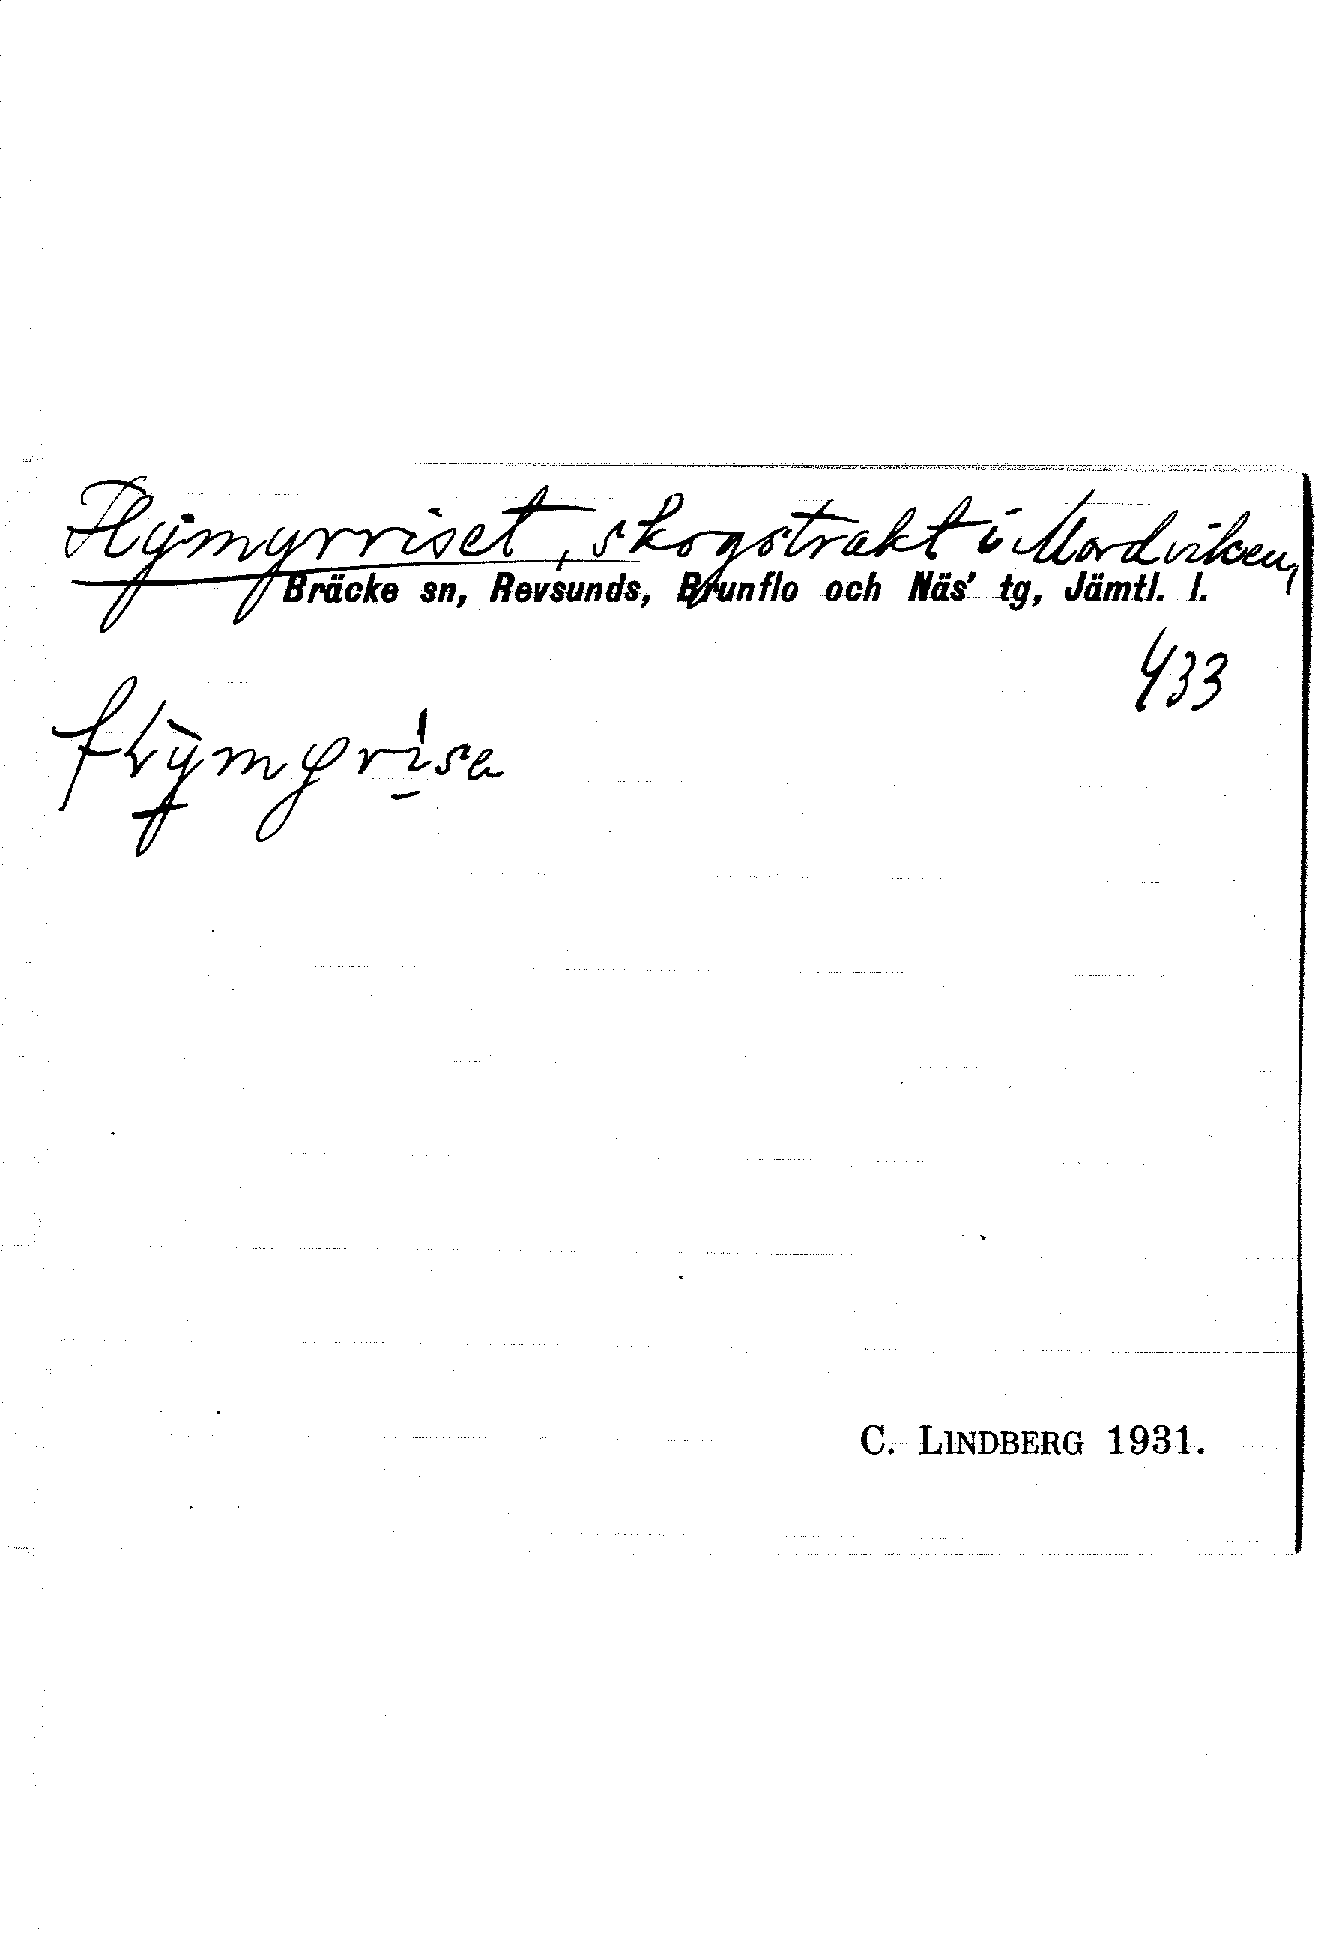 Flymyrriset, skogstrakt i Mordviken,
Bräcke sn, Revsunds, Brunflo och Näs' tg, Jämtl. l.
433
C. LINDBERG 1931.